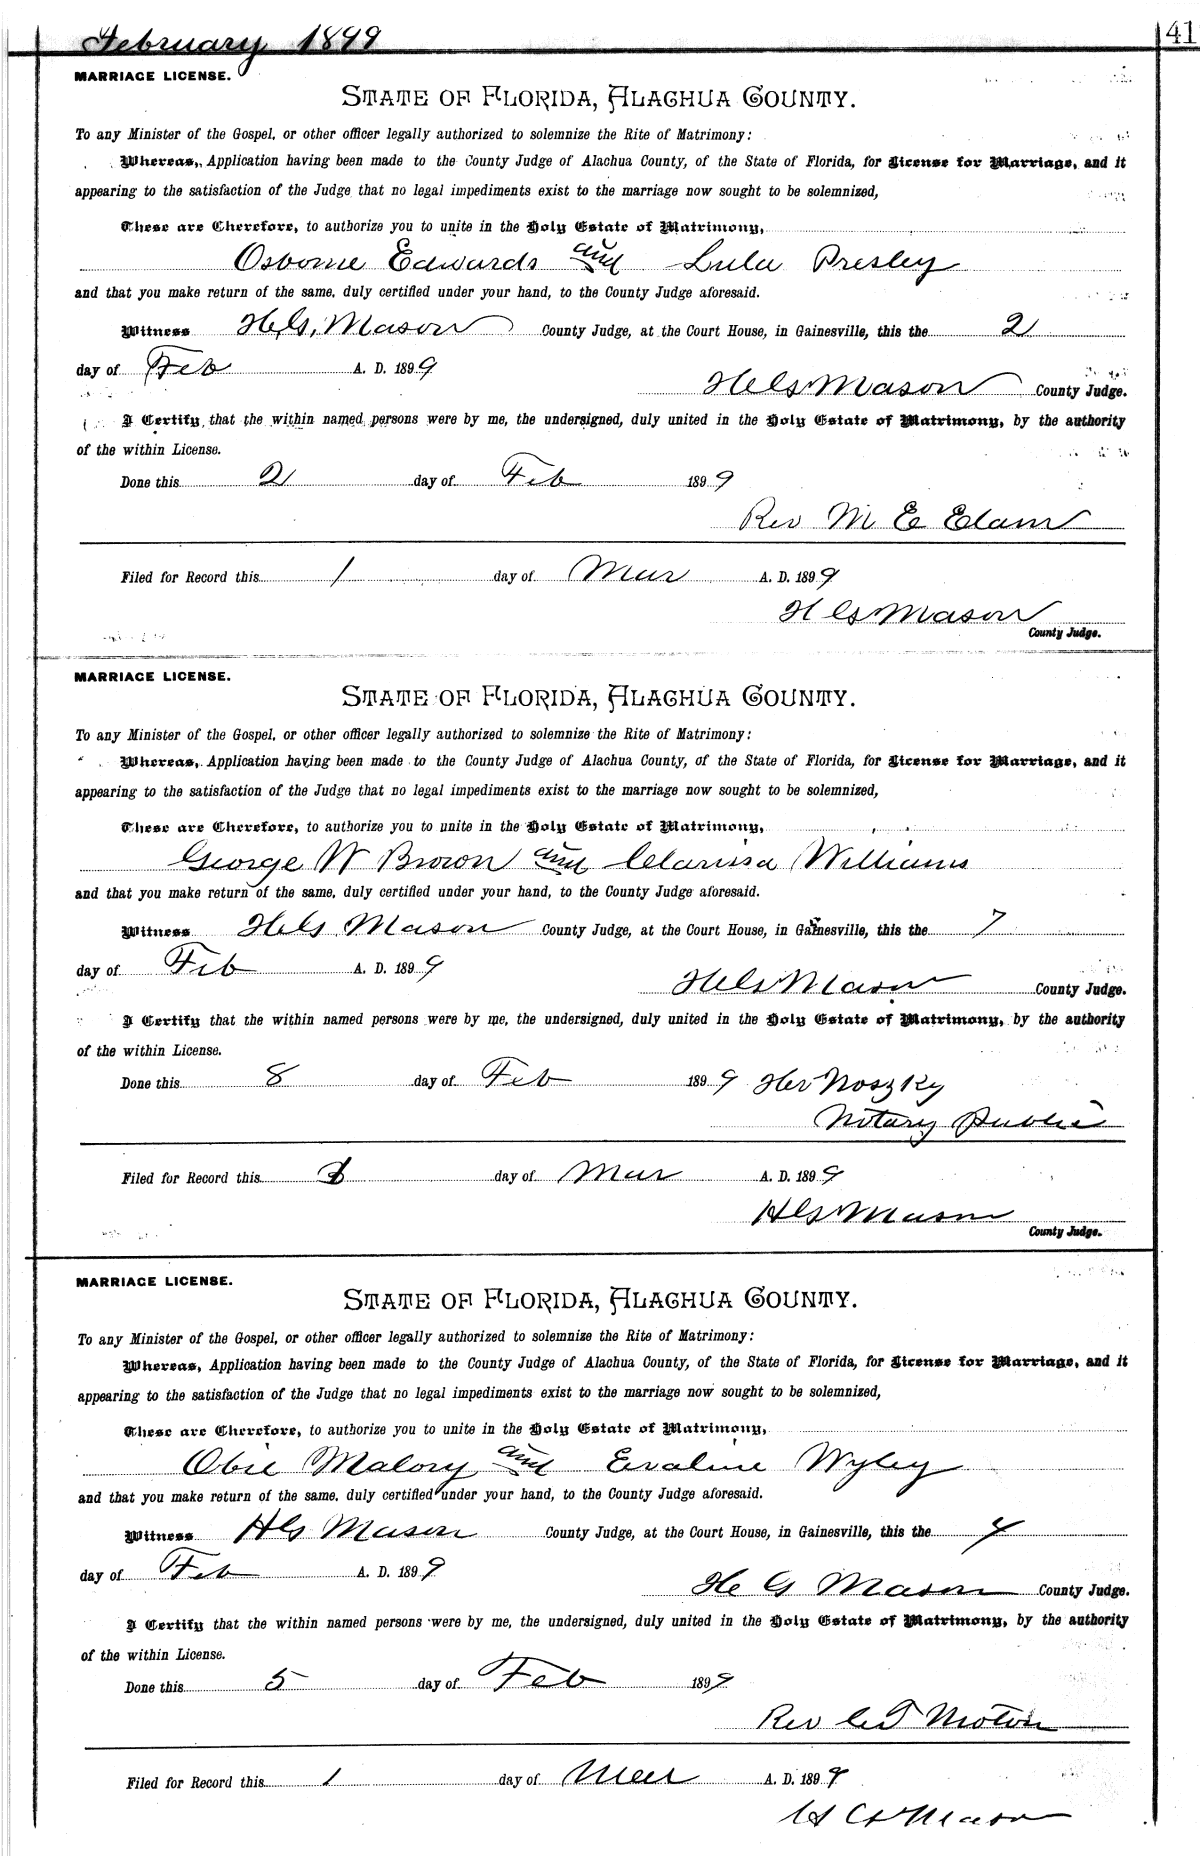 February 1899
41
MARRIAGE LICENSE.
STATE OF FLORIDA, ALACHUA COUNTY.
To any Minister of the Gospel, or other officer legally authorized to solemnize the Rite of Matrimony:
Whereas, Application having been made to the County Judge of Alachua County, of the State of Florida, for License for Marriage, and it
appearing to the satisfaction of the Judge that no legal impediments exist to the marriage now sought to be solemnized,
These are Therefore, to authorize you to unite in the Holy Estate of Matrimony,
Osborne Edwards and Lula Presley
and that you make return of the same, duly certified under your hand, to the County Judge aforesaid.
Witness H. G. Mason County Judge, at the Court House, in Gainesville, this the 2
day of Feb A. D. 1899
H G Mason County Judge.
I Certify that the within named persons were by me, the undersigned, duly united in the Holy Estate of Matrimony, by the authority
of the within License.
Done this 2 day of Feb 1899
Rev M E Elam
Filed for Record this 1 day of Mar A. D. 1899
H G Mason
County Judge.
MARRIAGE LICENSE.
STATE OF FLORIDA, ALACHUA COUNTY.
To any Minister of the Gospel, or other officer legally authorized to solemnize the Rite of Matrimony:
Whereas, Application having been made to the County Judge of Alachua County, of the State of Florida, for License for Marriage, and it
appearing to the satisfaction of the Judge that no legal impediments exist to the marriage now sought to be solemnized,
These are Therefore, to authorize you to unite in the Holy Estate of Matrimony,
George W Brown and Clarissa Williams
and that you make return of the same, duly certified under your hand, to the County Judge aforesaid.
Witness H G Mason County Judge, at the Court House, in Gainesville, this the 7
day of Feb A. D. 1899
H G Mason County Judge.
I Certify that the within named persons were by me, the undersigned, duly united in the Holy Estate of Matrimony, by the authority
of the within License.
Done this 8 day of Feb 1899
Notary Public
Filed for Record this 1 day of Mar A. D. 1899
H G Mason
County Judge.
MARRIAGE LICENSE.
STATE OF FLORIDA, ALACHUA COUNTY.
To any Minister of the Gospel, or other officer legally authorized to solemnize the Rite of Matrimony:
Whereas, Application having been made to the County Judge of Alachua County, of the State of Florida, for License for Marriage, and it
appearing to the satisfaction of the Judge that no legal impediments exist to the marriage now sought to be solemnized,
These are Therefore, to authorize you to unite in the Holy Estate of Matrimony,
Obie Malory and Evaline Wyley
and that you make return of the same, duly certified under your hand, to the County Judge aforesaid.
Witness H G Mason County Judge, at the Court House, in Gainesville, this the 4
day of Feb A. D. 1899
H G Mason County Judge.
I Certify that the within named persons were by me, the undersigned, duly united in the Holy Estate of Matrimony, by the authority
of the within License.
Done this 5 day of Feb 1899
Rev C T Moton
Filed for Record this 1 day of Mar A. D. 1899
H G Mason